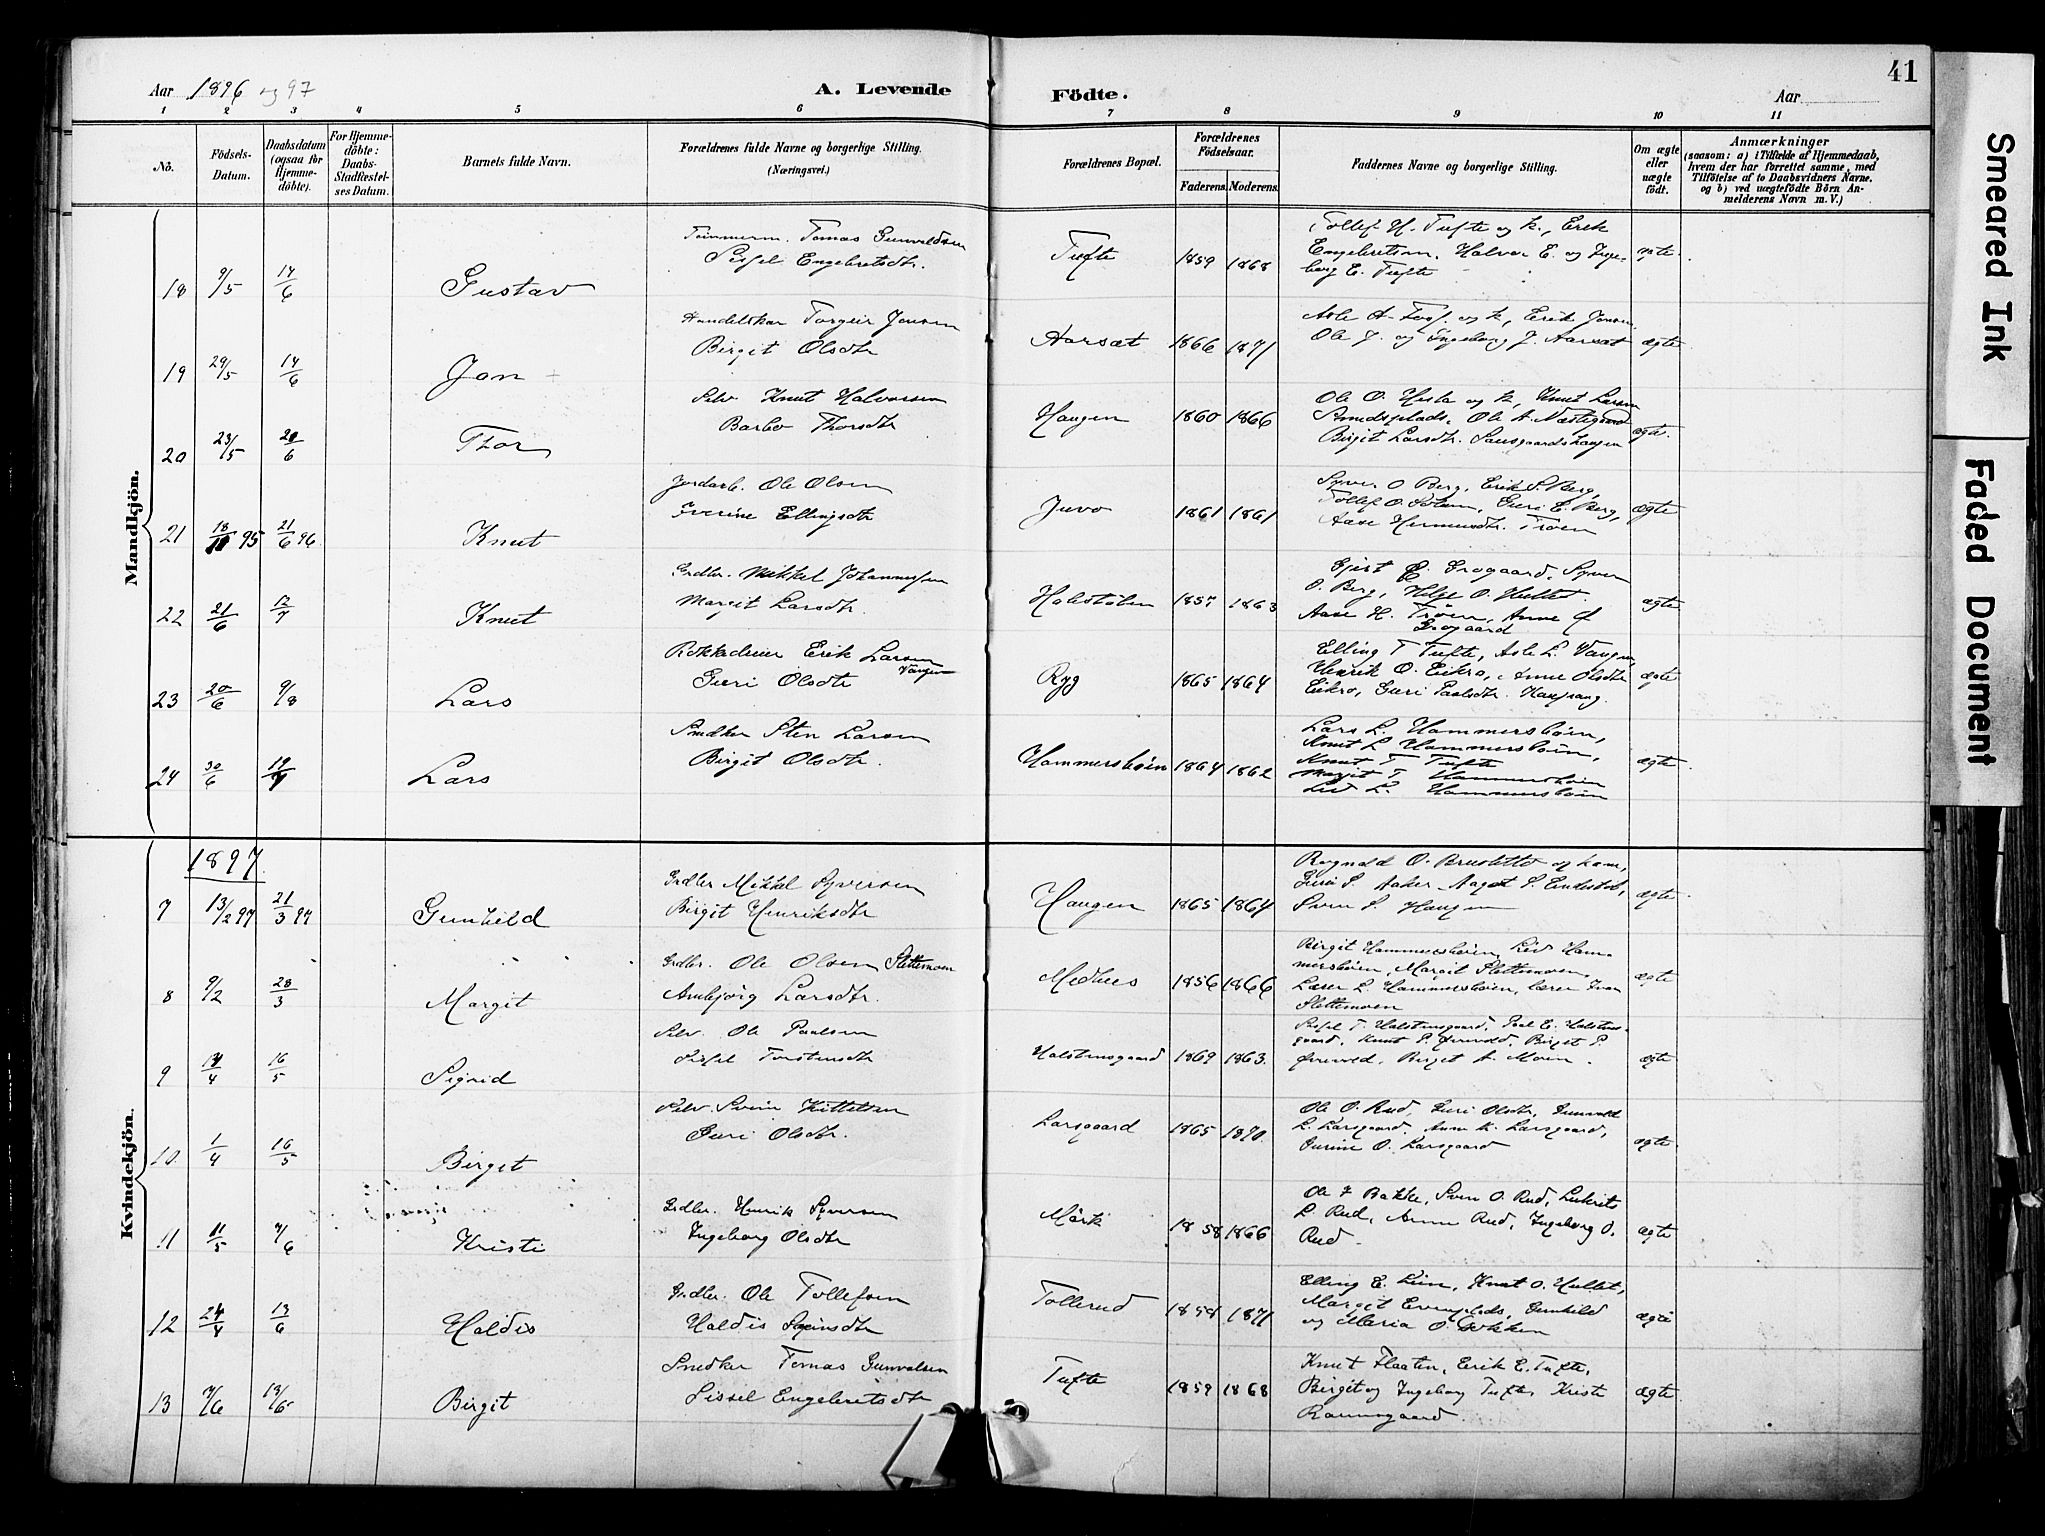 41
Aar 1896 og 97
A. Levende Födte.
Aar
1 2 3 4 5 6 7 8 9 10 11
Nô.
Födsels-Datum.
Daabsdatum (ogsaa for Hjemme-döbte).
For Hjemme-döbte: Daabs-Stadfæstel-ses Datum.
Barnets fulde Navn.
Forældrenes fulde Navne og borgerlige Stilling. (Næringsvei.)
Forældrenes Bopæl.
Forældrenes Födselsaar.
Faderens. Moderens.
Faddernes Navne og borgerlige Stilling.
Om ægte eller uægte födt.
Anmærkninger
(saasom: a) i Tilfælde af Hjemmedaab, hvem der har forrettet samme, med Tilföielse af to Daabsvidners Navne. og b) ved uægtefödte Börn An-melderens Navn m. V.)
Mandkjön.
18 9/5 14/6 Gustav
Tømmerm. Tomas Gunvaldsen
Sissel Engebretsdtr.
Tufte 1859 1868
Tollef H. Tufte og k., Erik
Engebretsen, Halvor E. og Inge-
borg E. Tufte
ægte
19 29/5 14/6 Jon
Handelskar Torgeir Jonsen
Birgit Olsdtr
Aarsæt 1866 1871
Ole J. og Ingeborg J. Aarsæt
ægte
20 23/5 21/6 Thor
Selv Knut Halvorsen
Barbo Thorsdtr
Haugen 1860 1866
Ole O. Hesla og k, Knut Larsen
Ole A. Næstegaard
Birgit Larsdtr.
ægte
21 18/11 95 21/6 96. Knut
Jordarb. Ole Olsen
Iverine Ellingsdtr
Juvo 1861 1861
Syver O Berg, Erik S. Berg,
Tollef O. Guri E. Berg,
Aase Hermundsdtr. Trøen
ægte
22 21/6 12/7 Knut
Grdbr. Mikkel Johannessen
Margit Larsdtr.
Halstølen 1857 1863
E. Grøgaard, Syver
O. Berg, Helge O. Hullet.
Aase H. Trøen, Anne
Grøgaard
ægte
23 20/6 9/8 Lars
Rokkedreier Erik Larsen
Vangen
Guri Olsdtr
Ryg 1865 1864
Elling T Tufte, Asle L. Vangen,
Henrik O. Eikro, Anne Olsdtr
Eikro, Guri Paalsdtr.
ægte
24 30/6 19/7 Lars
Snedker Sten Larsen
Birgit Olsdtr.
Hammersbøen 1864 1862
Lars L. Hammersbøen,
Knut L Hammersbøen,
Knut T Tufte
Margit T. Hammersbøen
Liv L. Hammersbøen
ægte
Kvindekjön.
1897.
7 13/2 97 21/3 97 Gunhild
Grdbr Mikkel Syversen
Birgit Henriksdtr
Haugen 1865 1864
Rognald O. Brustette og kone,
Guri S. Aaker Aagot S. Endestøl,
Sven S. Haugen
ægte
8 9/2 28/3 Margit
Grdbr. Ole Olsen Slettemoen
Ambjörg Larsdtr.
Medhus 1856 1866
Birgit Hammersbøen, Liv Ham-
mersbøen, Margit Slettemoen.
L. Hammersbøen, lærer
Slettemoen
ægte
9 14/4 16/5 Sigrid
Selv. Ole Paalsen
Sissel Torstensdtr
Halstensgaard 1869 1863.
Sissel T. Halstensgaard, Paal E. Halstens-
gaard, Knut P. Birgit P.
Birgit A. Moen.
ægte
10. 1/4 16/5 Birget
Selv. Svein Kittelsen
Guri Olsdtr.
Larsgaard 1865 1870.
Ole O. Rud, Guri Olsdtr, Gunvald
L. Larsgaard, Anne K. Larsgaard,
O. Larsgaard
ægte
11 11/5 7/6 Kristi
Grdbr. Henrik Syversen
Ingeborg Olsdtr
Mörk 1858 1866
Ole J Bakke, Sven O. Rud, Lukrits
L. Rud, Anne Rud, Ingeborg O.
Rud
ægte
12 24/4 13/6 Haldis
Grdbr. Ole Tollefsen
Haldis Sveinsdtr
Tollerud 1858 1871
Elling E. Lien, Knut O. Hullet,
Margit Gunhild
og Maria O. Løkken
ægte
13 7/6 13/6 Birgit
Snedker Tomas Gunvalsen
Sissel Engebretsdtr
Tufte 1859 1868
Knut Flaaten, Erik E. Tufte,
Birgit og Ingeborg Tufte, Kristi
Ramsgaard.
ægte
Smeared Ink
Faded Document